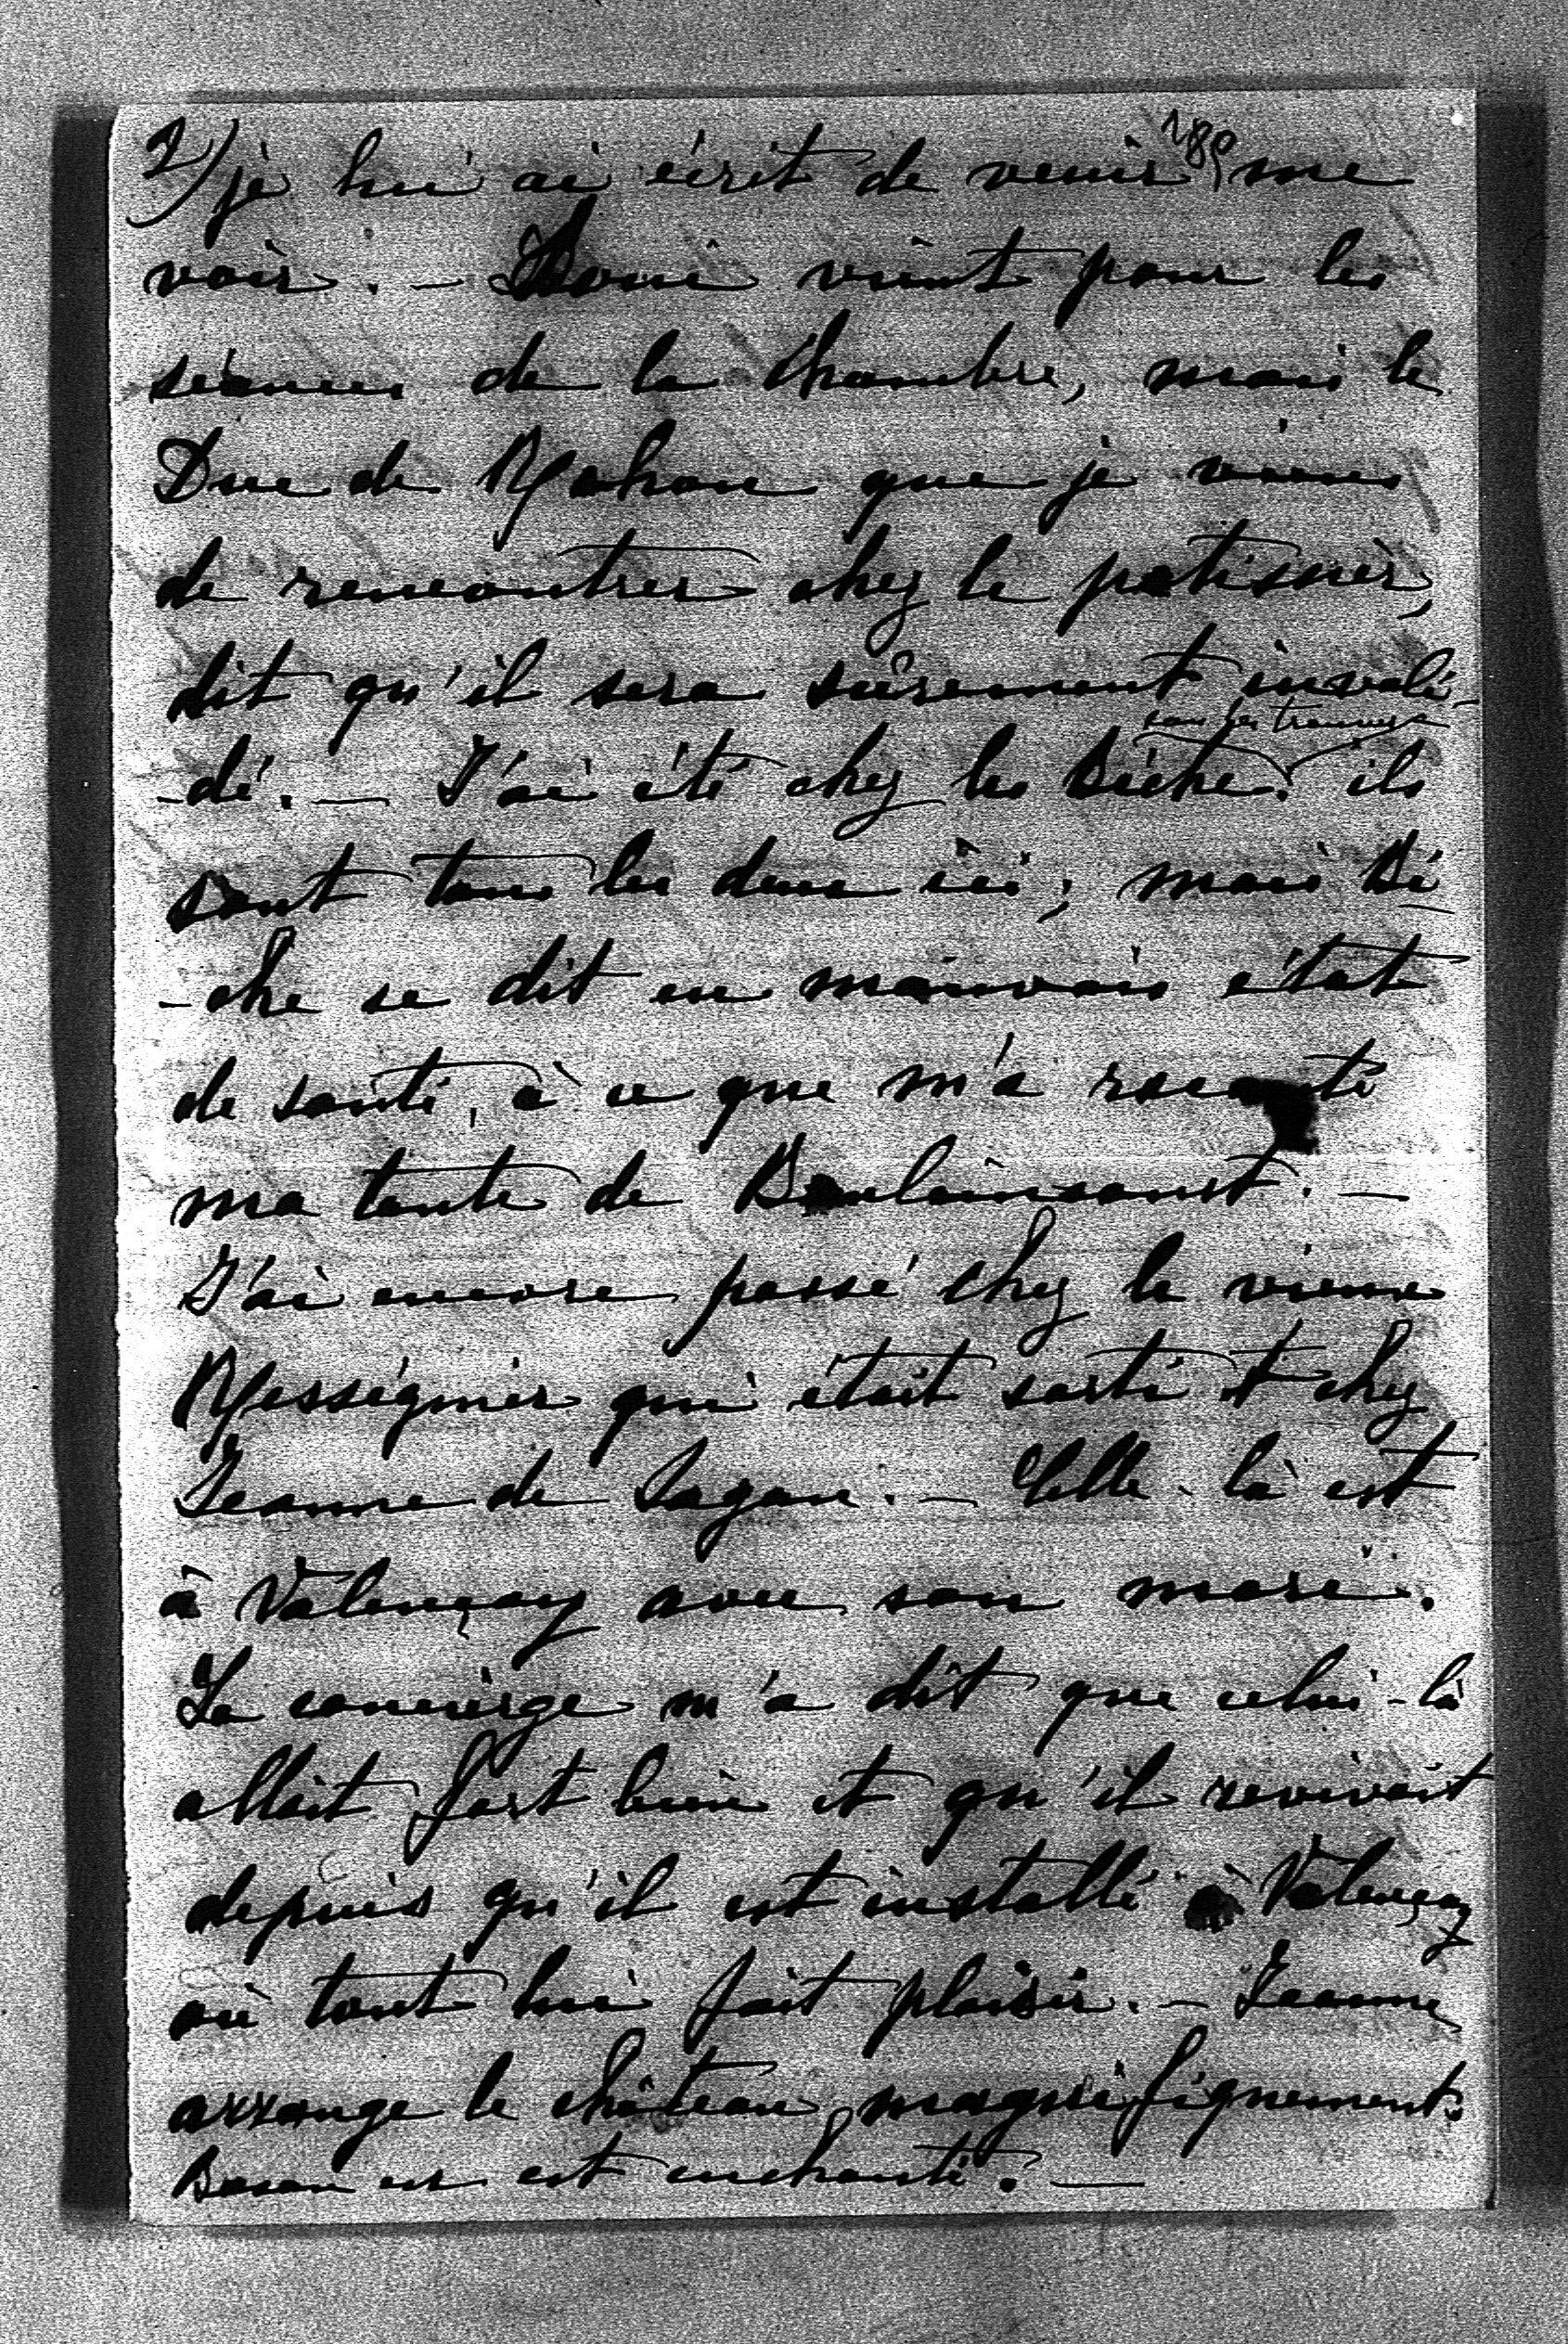 2) je lui ai écrit de venir me
voir. — Boni vient pour les
séances de la Chambre, mais le
Duc de Rohan que je viens
de rencontrer chez le patissier,
dit qu'il sera sûrement invali-
-dé. — J'ai été chez les Bêche. sans les trouver ils
sont tous les deux ici; mais Bê-
-che se dit en mauvais état
de santé, à ce que m'a raconté
ma tante de Beaulaincourt. —
J'ai encore passé chez le vieux
Rességuier qui était sorti et chez
Jeanne de Sagan. — Celle-là est
à Valençay avec son mari.
Le concierge m'a dit que celui-là
allait fort bien et qu'il revivait
depuis qu'il est installé à Valençay
où tout lui fait plaisir. — Jeanne
arrange le château magnifiquement.
Boson en est enchanté. —